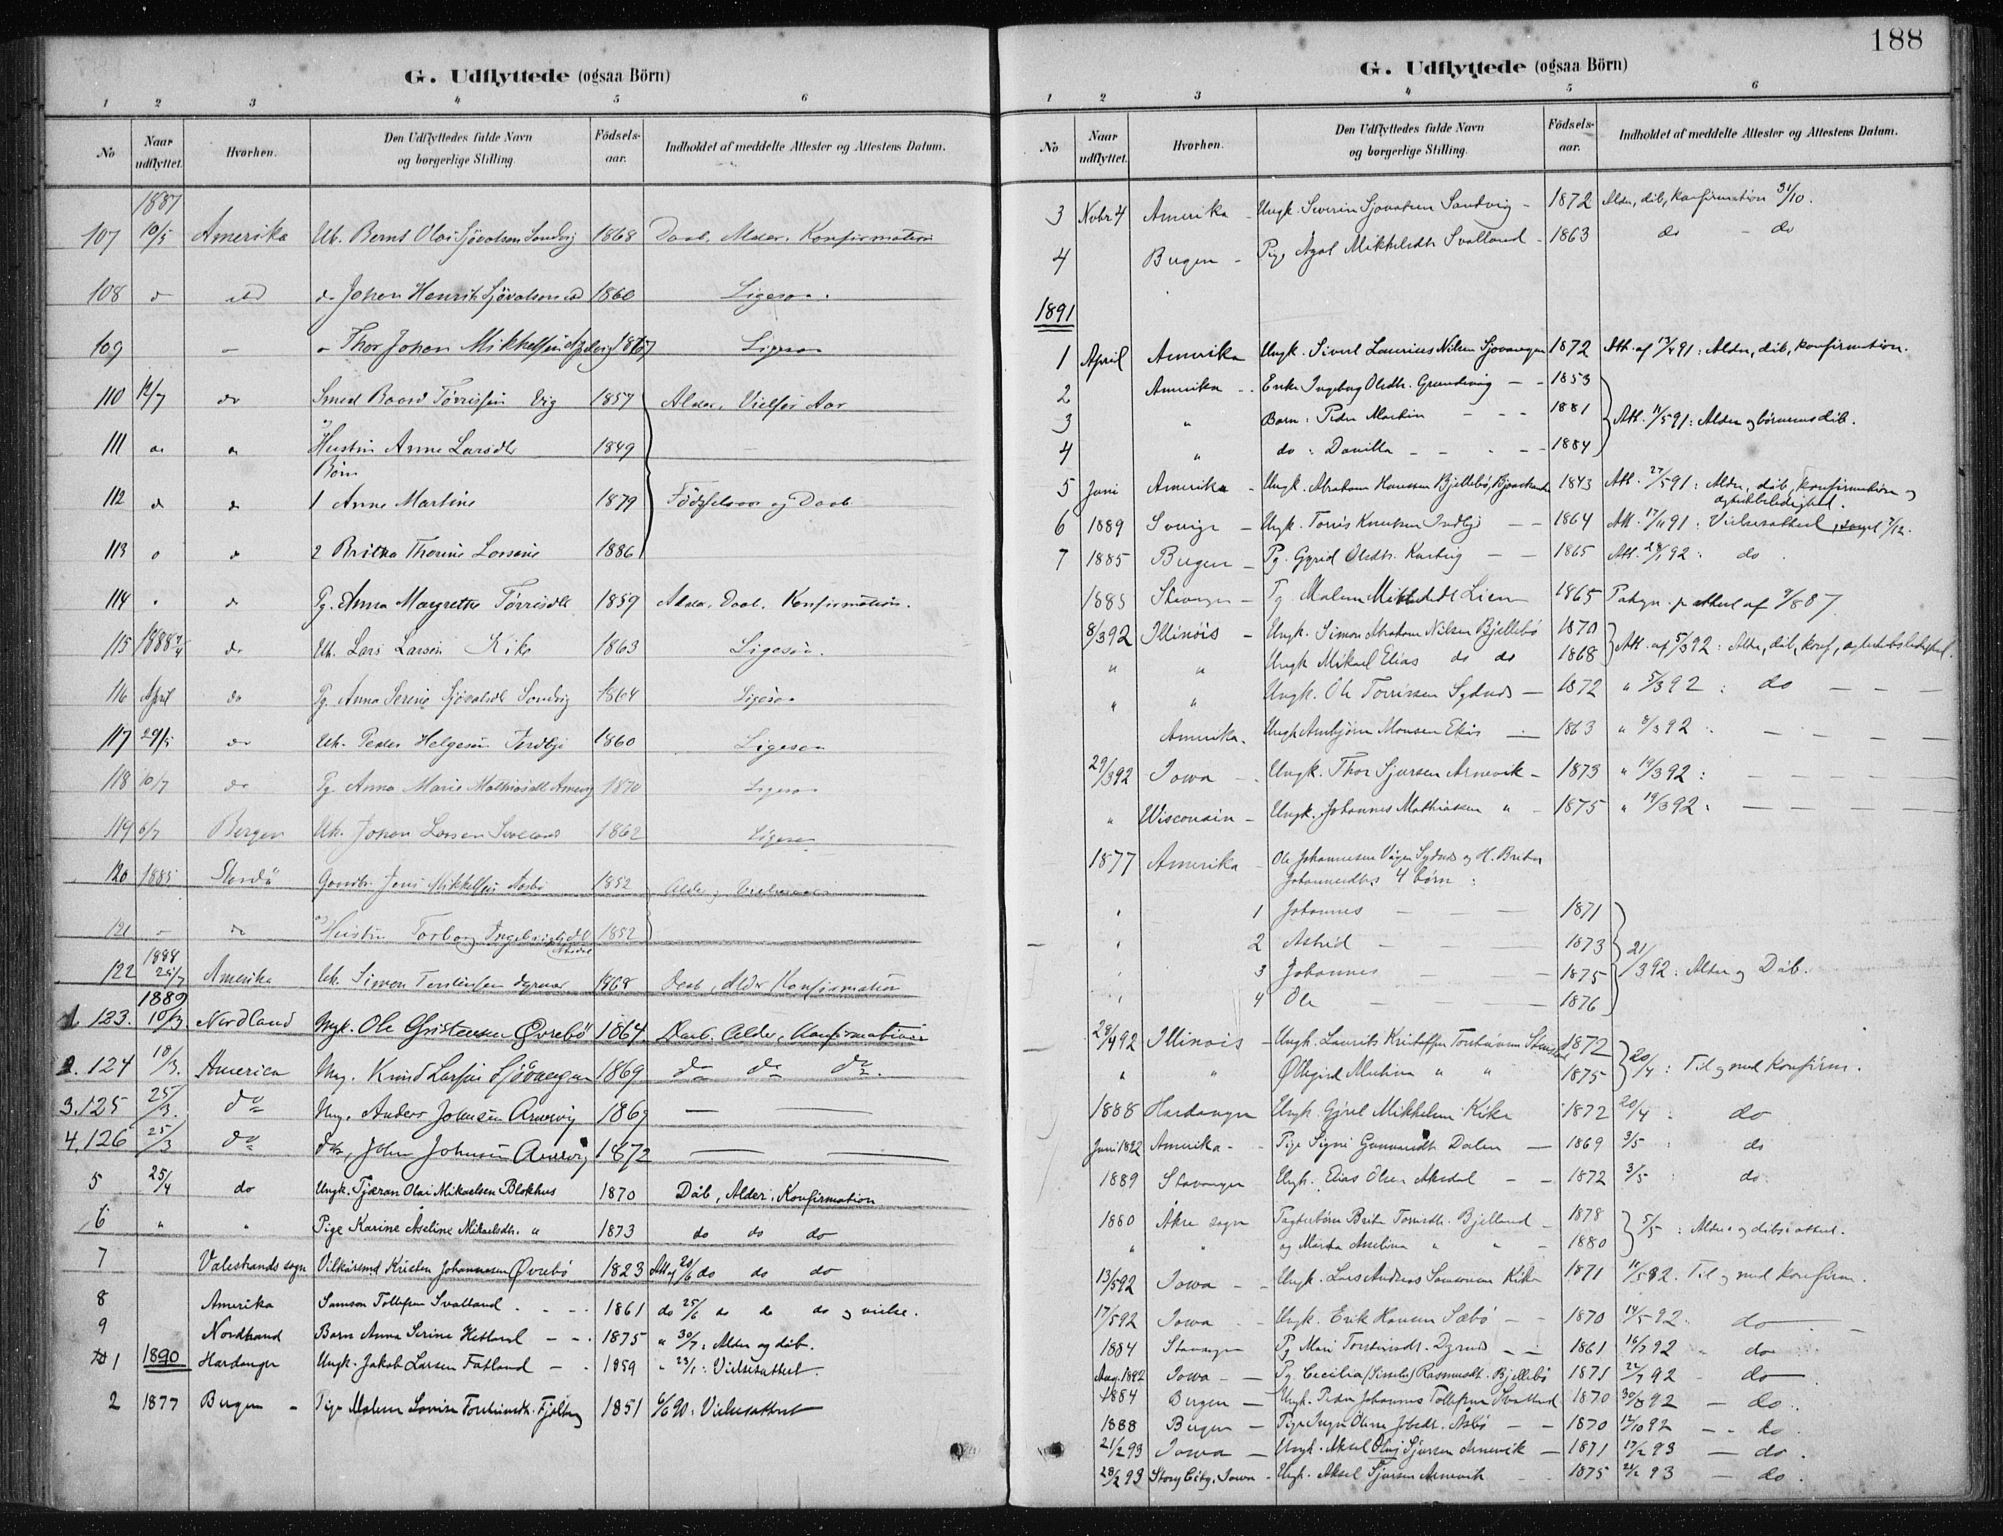 188
G. Udflyttede (ogsaa Börn)
1 2 3 4 5 6
No
Naar udflyttet.
Hvorhen.
Den Udflyttedes fulde Navn og borgerlige Stilling.
Födsels-aar.
Indholdet af meddelte Attester og Attestens Datum.
1887
107 10/5 Amerika Uk. Bernt Olai Sjövatsen Sandvig 1868 Daab, Alder, Konfirmation
108 do Johan Henrik Sjövatsen 1860 Ligesaa.
109 Thor Johan Mikkelsen 1867 Ligesaa
110 12/7 do Smed Baard Törrissen Vig 1857 Alder, Vielses Aar
111 Hustru Anne Larsdtr 1849
Börn
112 1 Anne Martine 1879 Födselsaar og Daab
113 2 Britha Thorine 1886
114 Pg. Anna Margrethe Törrisdtr 1859 Alder, Daab, Konfirmation.
115 1888 do Uk. Lars Larsen Kike 1863 Ligesaa.
116 April do Pg. Anna Serine Sjövatsdtr Sandvig 1864 Ligesaa
117 29/5 do Uk. Peder Helgesen Indbjo 1860 Ligesaa
118 10/7 do Pg. Anna Marie Mathiasdtr Arnevig 1870 Ligesaa
119 6/7 Bergen Uk. Johan Larsen Svalland 1862 Ligesaa
120 1885 Stordö Gaardbr. Jens Mikkelsen Aasbö 1852 Alder
121 do Hustru Torborg Ingebrigtsdtr 1852
1888
122 25/7 Amerika Uk. Simon Torstensen 1868 Daab, Alder, Konfirmation
1889
1. 123. 10/3 Nordland Ungk. Ole Christensen Øvrebö 1864. Daab, Alder, Konfirmation
2. 124 18/3. America Ung. Knud Larsen Sjövangen 1869 do do do.
3. 125 25/3. do Ung. Anders Johnsen Arnevig 1869 — —
4. 126 25/3 do John Johnsen Arnevig 1872 — —
5 25/4 do Ungk. Tjæran Olai Mikaelsen Blokhus 1870 Dåb, Alder, Konfirmation
6 " " Pige Karine Aseline Mikaelsdtr. " 1873 do do do
7 Valestrands sogn Vilkårsmd Kristen Johannesen Øvrebö 1823 Att. af 20/6 do do do
8 Amerika Samson Tollefsen Svalland 1861 do 25/6 do do do og vielse.
9 Nordstrand Barn Anna Serine Hetland 1875 " 30/7: Alder og dåb.
1890
1 Hardanger Ungk. Jakob Larsen Fatland 1859 " 23/1: Vielsesattest.
2 1877 Bergen Pige Malene Lovise Torsteinsdtr. Fjelberg 1851 6/6 90: Vielsesattest
G. Udflyttede (ogsaa Börn)
1 2 3 4 5 6
No
Naar udflyttet.
Hvorhen.
Den Udflyttedes fulde Navn og borgerlige Stilling.
Födsels-aar.
Indholdet af meddelte Attester og Attestens Datum.
3 Novbr 4 Amerika Ungk. Severin Sjovatsen Sandvig 1872 Alder, dåb, konfirmation 31/10.
4 Bergen Pige Agat Mikkelsdtr Svalland 1863 do do
1891
1 April Amerika Ungk. Sivert Laurius Nilsen Sjovangen 1872 Att. af 13/4 91: Alder, dåb, konfirmation.
2 Amerika Enke Ingeborg Olsdtr. Grundevåg 1853
3 " Barn: Peder Martin 1881 Att. 11/5 91: Alder og börnenes dåb.
4 " do: Danilla 1884
5 Juni Amerika Ungk. Abraham Hansen Bjellebö, 1843 Att. 27/5 91: Alder, dåb, konfirmation og ægteskabsledighed.
6 1889 Sverige Ungk. Torris Knutsen Indbjo 1864 Att. 17/11 91: Vielsesattest, 7/12.
7 1885 Bergen Pg. Gyrid Olsdtr. Kartvig 1865 Att. 28/1 92: do.
1885 Stavanger Pg Malene Mikkelsdtr Lien 1865 attest af 9/8 87.
8/3 92 Illinois Ungk. Simon Abraham Nilsen Bjellebö 1870 Att. af 5/3 92: Alder, dåb, konf., ægteskabsledighed.
" " Ungk Mikael Elias do do 1868
" " Ungk. Ole Torrissen Sydnes 1872 " 5/3 92: do
Amerika. Ungk. Arnbjørn Monsen Ekis 1863 " 8/3 92.
29/3 92 Iowa Ungk. Thor Sjursen Arnevik 1873 " 19/3 92:
" Wisconsin Ungk. Johannes Mathiasen " 1875 " 19/3 92:
1877 Amerika Ole Johannesen Vågen Sydnes og H. Brita Johannesdtrs 4 börn:
1 Johannes 1871
2 Astrid 1873 21/3 92: Alder og Dåb.
3 Johannes 1875
4 Ole 1876
28/4 92 Illinois Ungk. Laurits Kristoffer Torbjörnsen 1872 20/4: Til og med konfirm.
" " Martina " " 1875
1888 Hardanger Ungk. Gjert Mikkelsen Kike 1872 20/4 do
Juni 1892 Amerika Pige Signi Gunnarsdtr Dalen 1869 3/5: do
1889 Stavanger Ungk. Elias Olsen Aksdal 1872 3/5: do.
1880 Åkre sogn Brita Torrisdtr. Bjelland 1878 5/5: Alders og dåbsattest.
" " og Marta Asseline " " 1880
13/5 92 Iowa Ungk. Lars Andreas Samsonsen Kike 1871 11/5 92. Til og med konfirm.
17/5 92 Iowa Ungk. Erik Hansen Sæbö 1870 14/5 92. do
1884 Stavanger Pg Mari Torsteinsdtr. 1861 16/7 92 " do
Aug. 1892 Iowa Pg. Cecilia (Sissela) Rasmusdtr. Bjellebö 1871 22/7 92 do
1884 Bergen Ungk. Peder Johannes Tollefsen Svalland 1870 30/8 92 do.
1888 Bergen Pige Inger Oline Jobsdr. Asbø 1870 12/10 92 do.
21/2 93 Iowa Ungk. Aksel Olaj Sjursen Arnevik 1871 17/2 93 do.
28/2 93 Story City, Iowa Ungk. Aksel Sjursen Arnevik 1875 24/2 93 do.